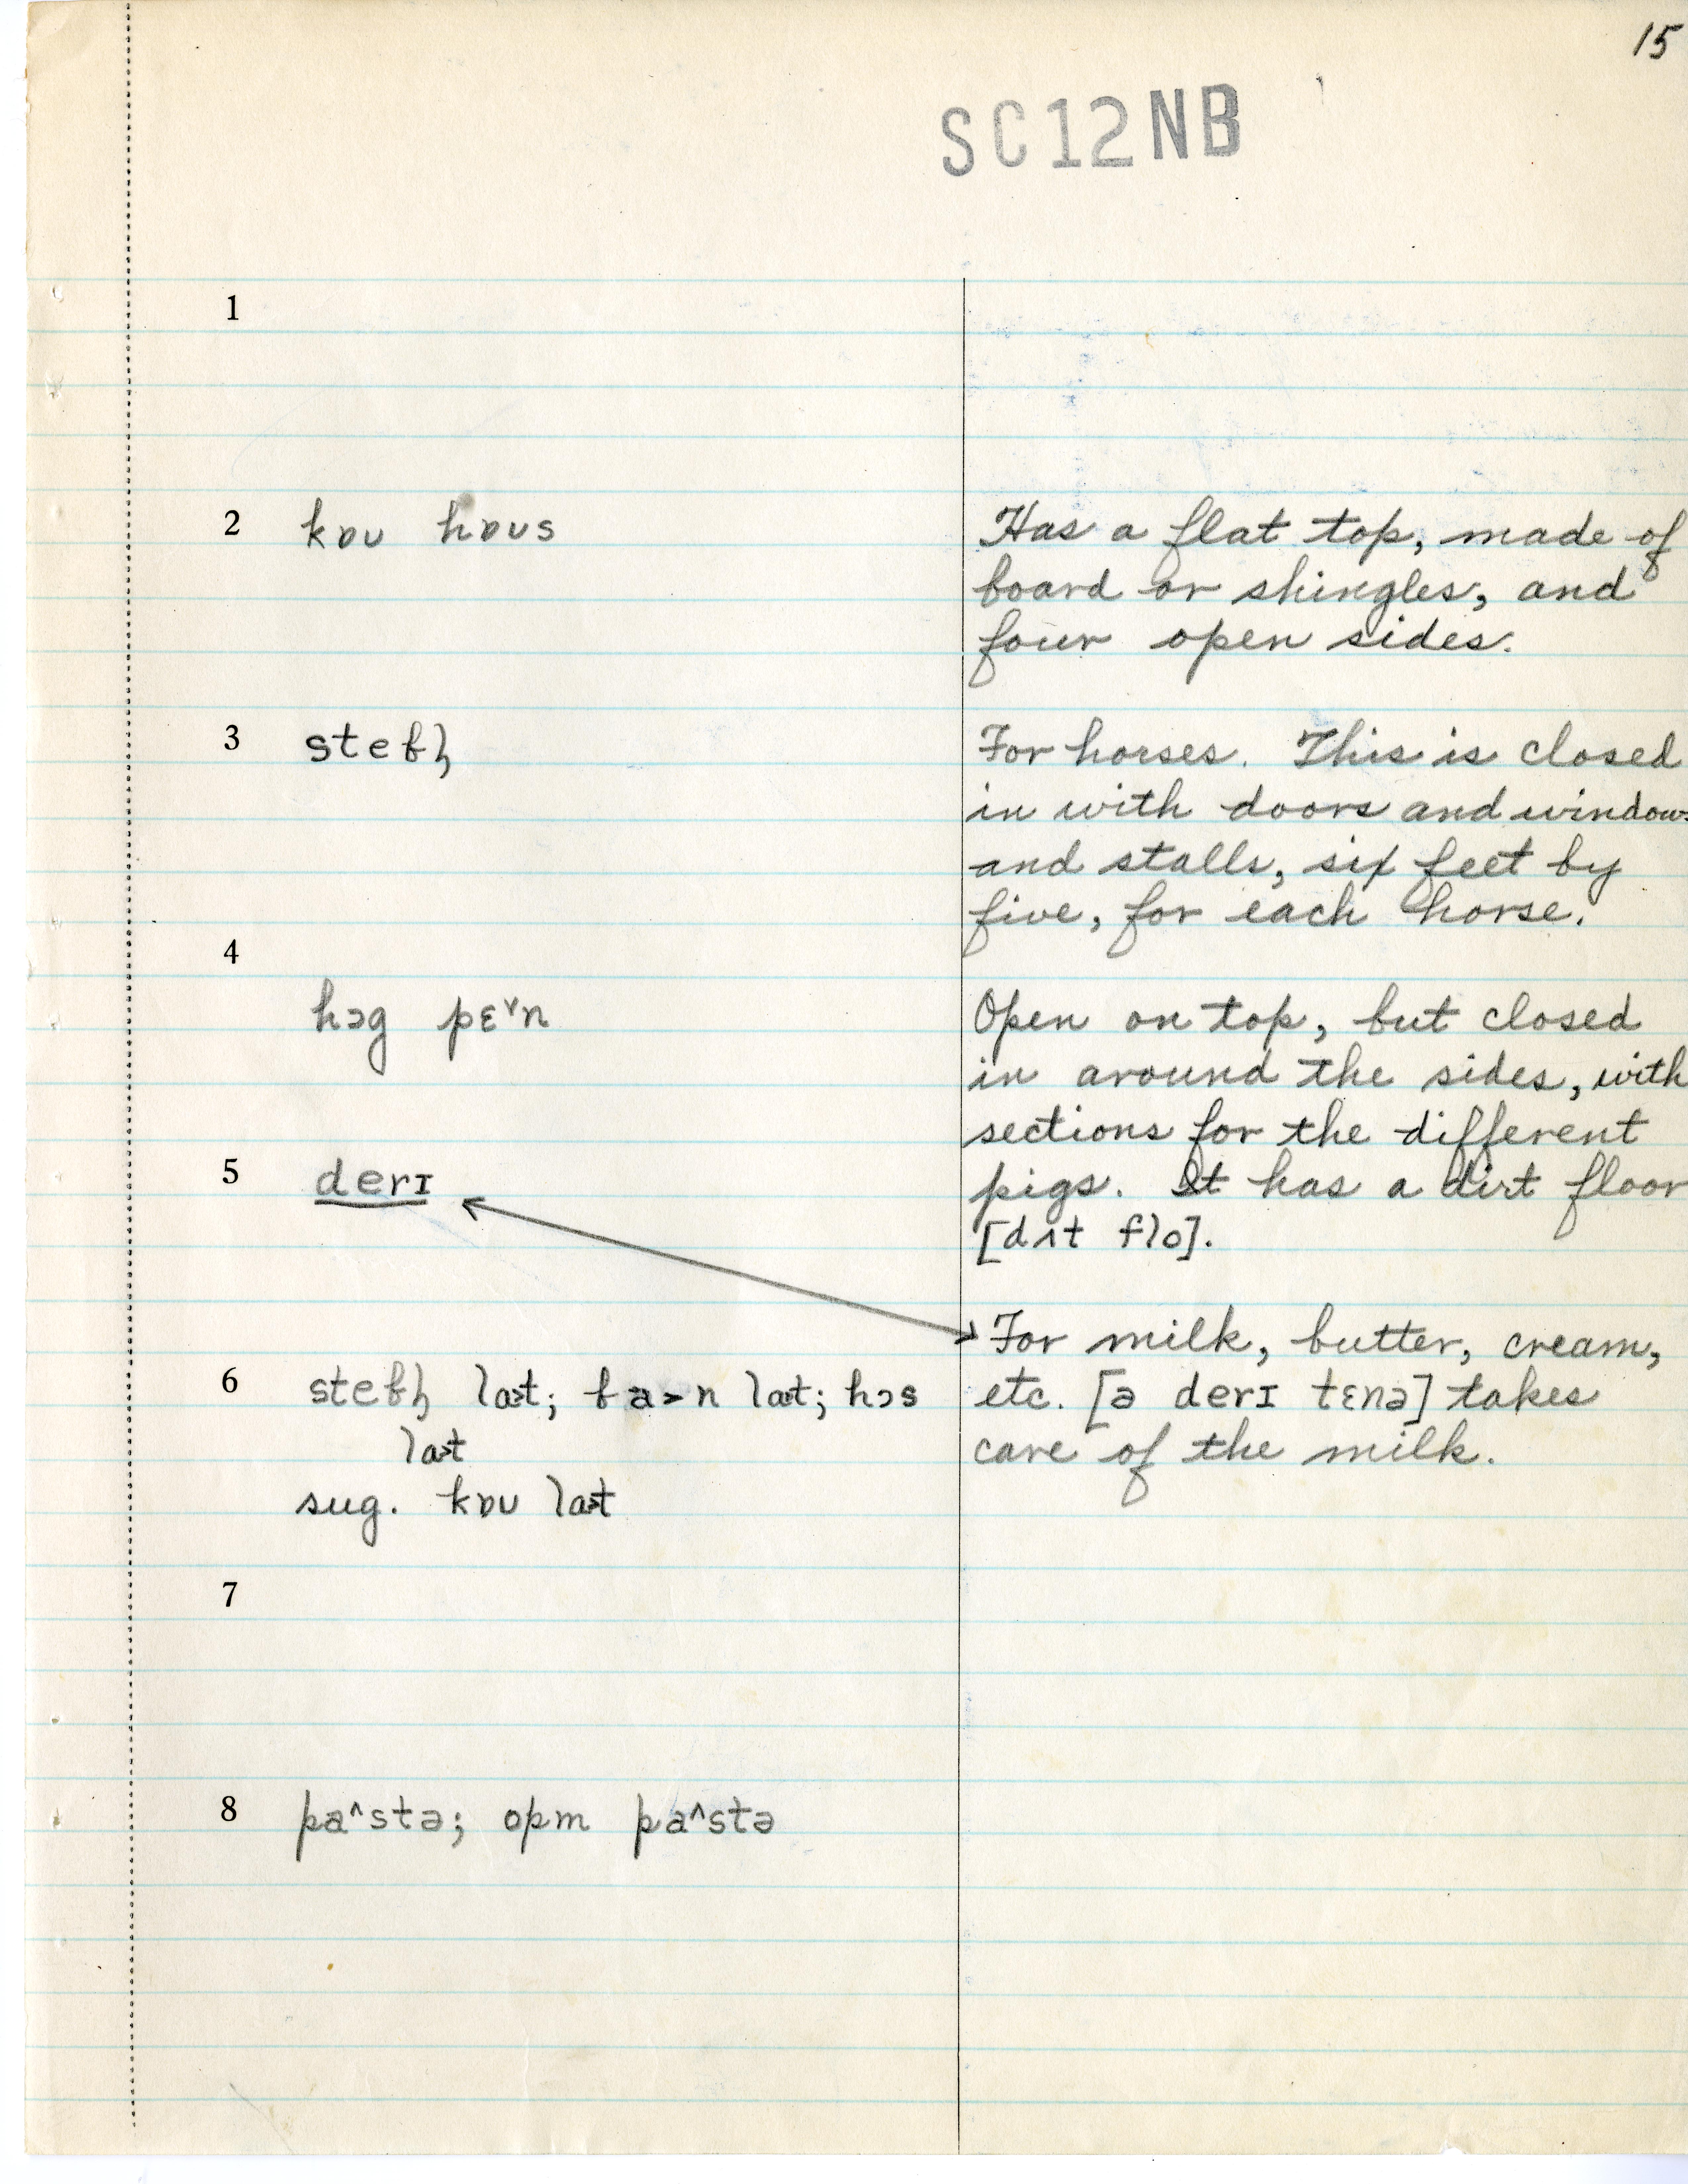 15
SC12NB
1
2 kɒu hɒus
Has a flat top, made of
board or shingles, and
four open sides.
3 steɓl̩
For horses. This is closed
in with doors and window
and stalls, six feet by
five, for each horse.
4
hɔg pɛ˅n
Open on top, but closed
in around the sides, with
sections for the different
pigs. It has a dirt floor
[dɜt flo].
5 derɪ
For milk, butter, cream,
etc. [ə derɪ tɛnə] takes
care of the milk.
6 steɓl̩ la>t; ɓa>n la>t; hɔs
la>t
sug. kɒu la>t
7
8 pa^stə; opm pa^stə